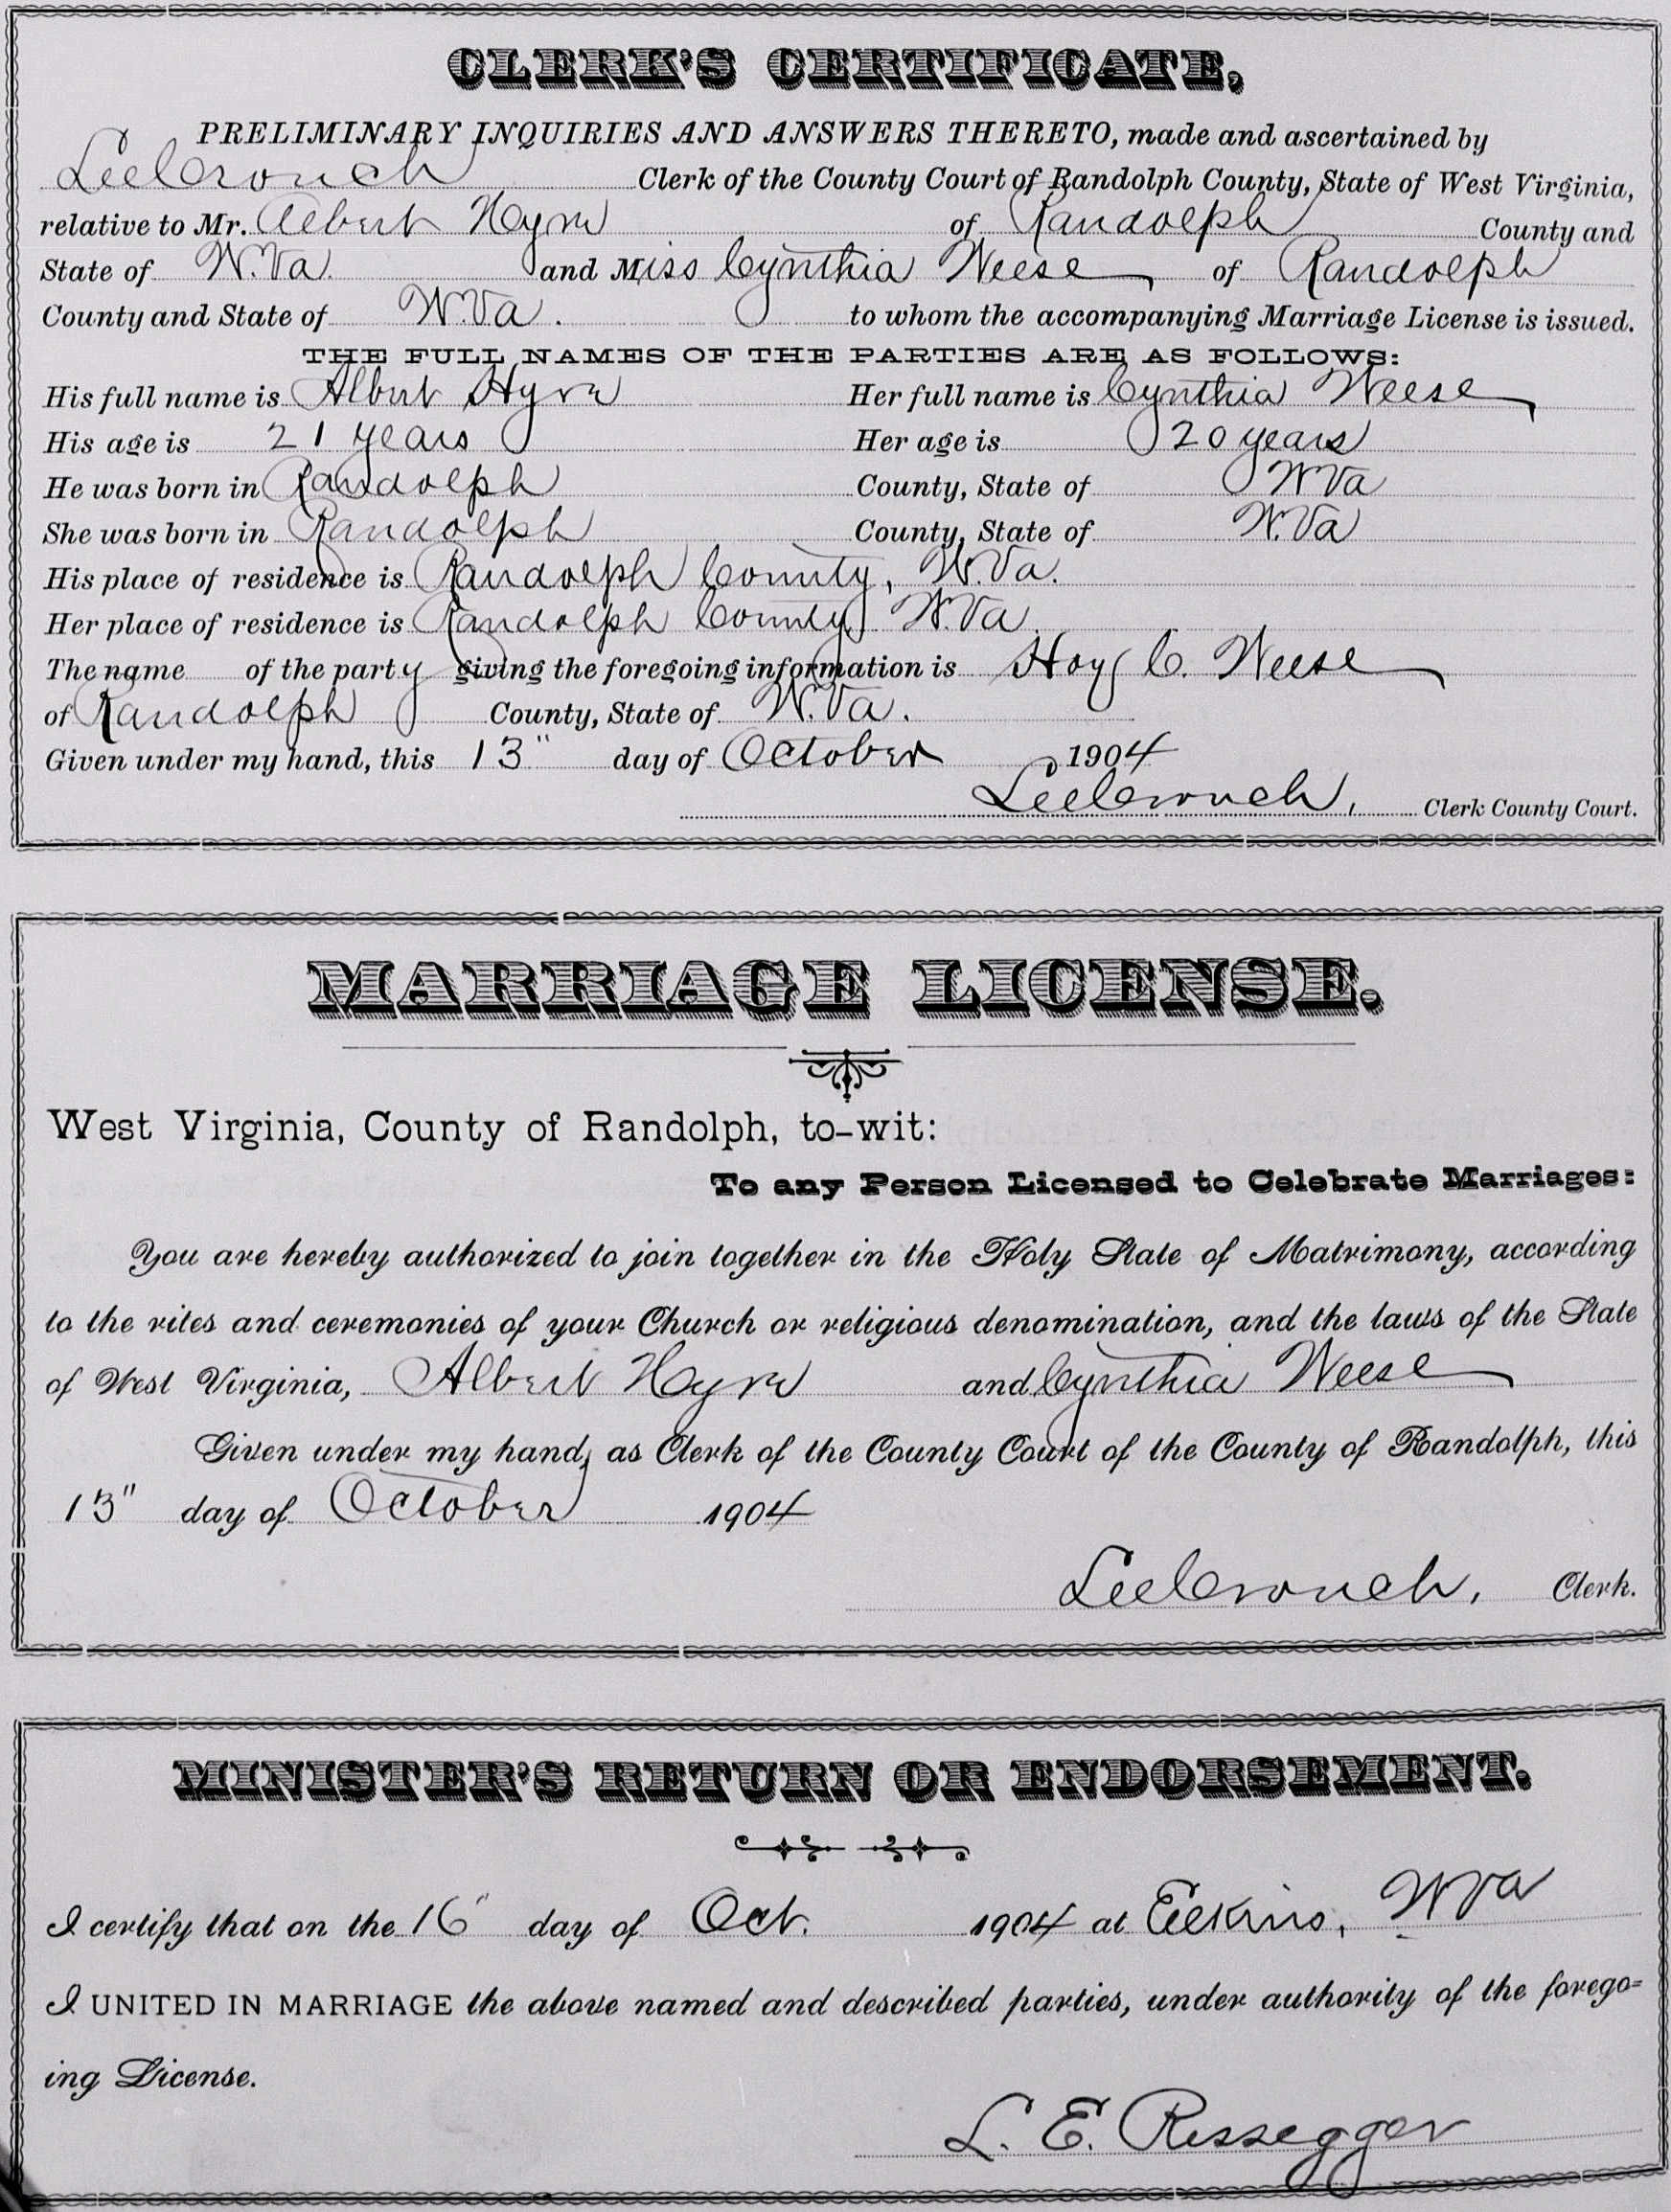 CLERK'S CERTIFICATE,
PRELIMINARY INQUIRIES AND ANSWERS THERETO, made and ascertained by
Lee Crouch Clerk of the County Court of Randolph County, State of West Virginia,
relative to Mr. Albert Hyre of Randolph County and
State of W.Va. and Miss Cynthia Weese of Randolph
County and State of W.Va. to whom the accompanying Marriage License is issued.
THE FULL NAMES OF THE PARTIES ARE AS FOLLOWS:
His full name is Albert Hyre Her full name is Cynthia Weese
His age is 21 years Her age is 20 years
He was born in Randolph County, State of W Va
She was born in Randolph County, State of W.Va
His place of residence is Randolph County, W.Va.
Her place of residence is Randolph County W.Va
The name of the party giving the foregoing information is Hoy C. Weese
of Randolph County, State of W.Va.
Given under my hand, this 13" day of October 1904
Lee Crouch, Clerk County Court.
MARRIAGE LICENSE.
West Virginia, County of Randolph, to-wit:
To any Person Licensed to Celebrate Marriages:
You are hereby authorized to join together in the Holy State of Matrimony, according
to the rites and ceremonies of your Church or religious denomination, and the laws of the State
of West Virginia, Albert Hyre and Cynthia Weese
Given under my hand, as Clerk of the County Court of the County of Randolph, this
13" day of October 1904
Lee Crouch, Clerk.
MINISTER'S RETURN OR ENDORSEMENT.
I certify that on the 16" day of Oct. 1904 at Elkins, W Va
I UNITED IN MARRIAGE the above named and described parties, under authority of the forego=
ing License.
L. E. Ressegger